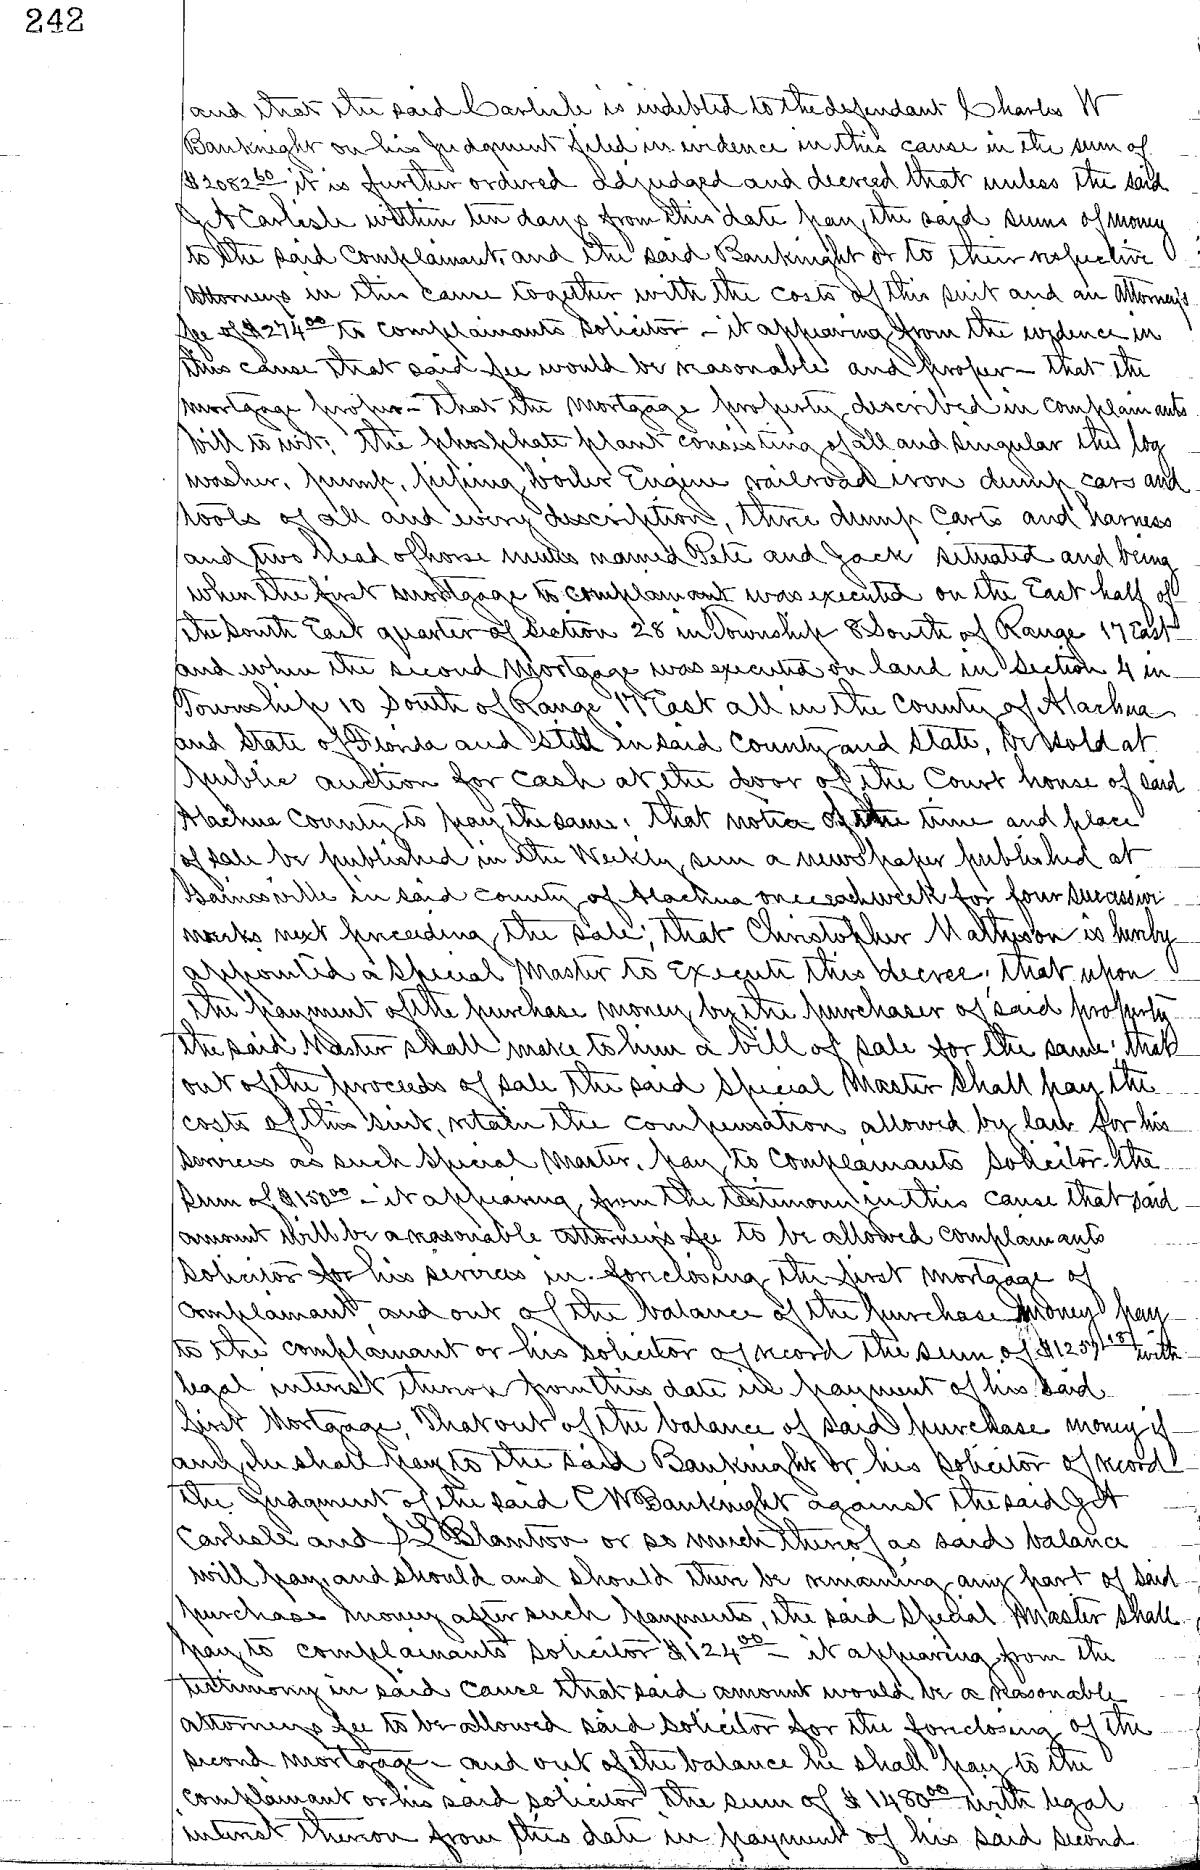 242
and that the said Carlisle is indebted to the defendant Charles W
Bauknight on his Judgment filed in evidence in this cause in the sum of
$2082 60 it is further ordered adjudged and decreed that unless the said
J A Carlisle within ten days from this date pay the said sums of money
to the said Complainant, and the said Bauknight or to their respective
Attorneys in this cause together with the costs of this suit and an Attorney's
fee of $274 00 to complainants solicitor - it appearing from the evidence in
this cause that said fee would be reasonable and proper - that the
mortgage proper - That the Mortgage property described in complainants
bill to wit: The phosphate plant consisting of all and singular the log
washer, pump, piping, boiler Engine railroad iron dump cars and
tools of all and every description, three dump Carts and harness
and two head of horse mules named Pete and Jack situated and being
when the first mortgage to complainant was executed on the East half of
the South East quarter of Section 28 in Township 8 South of Range 17 East
and when the second Mortgage was executed on land in Section 4 in
Township 10 South of Range 17 East all in the County of Alachua
and State of Florida and still in said County and State, be sold at
public auction for cash at the door of the Court house of said
Alachua County to pay the same; that notice of the time and place
of sale be published in the Weekly Sun a newspaper published at
Gainesville in said county of Alachua once each week for four successive
weeks next preceeding the sale; that Christopher Matheson is hereby
appointed a Special Master to Execute this decree; that upon
the payment of the purchase money by the purchaser of said property
the said Master shall make to him a bill of sale for the same; that
out of the proceeds of sale the said Special Master shall pay the
costs of this suit, retain the compensation allowed by law for his
services as such Special Master, pay to Complainants Solicitor the
sum of $150 00 - it appearing from the testimony in this cause that said
amount will be a reasonable attorneys fee to be allowed complainants
solicitor for his services in foreclosing the first mortgage of
complainant, and out of the balance of the purchase money pay
to the complainant or his solicitor of record the sum of with
legal interest thereon from this date in payment of his said
first Mortgage, That out of the balance of said purchase money if
any, he shall pay to the said Bauknight or his solicitor of record
the Judgment of the said C W Bauknight against the said J A
Carlisle and S L Blanton or so much thereof as said balance
will pay, and should and should there be remaining any part of said
purchase money after such payments, the said Special Master shall
pay to complainants solicitor $124 00 - it appearing from the
testimony in said cause that said amount would be a reasonable
attorneys fee to be allowed said solicitor for the foreclosing of the
second mortgage - and out of the balance he shall pay to the
complainant or his said solicitor the sum of $1480 00 with legal
interest thereon from this date in payment of his said second